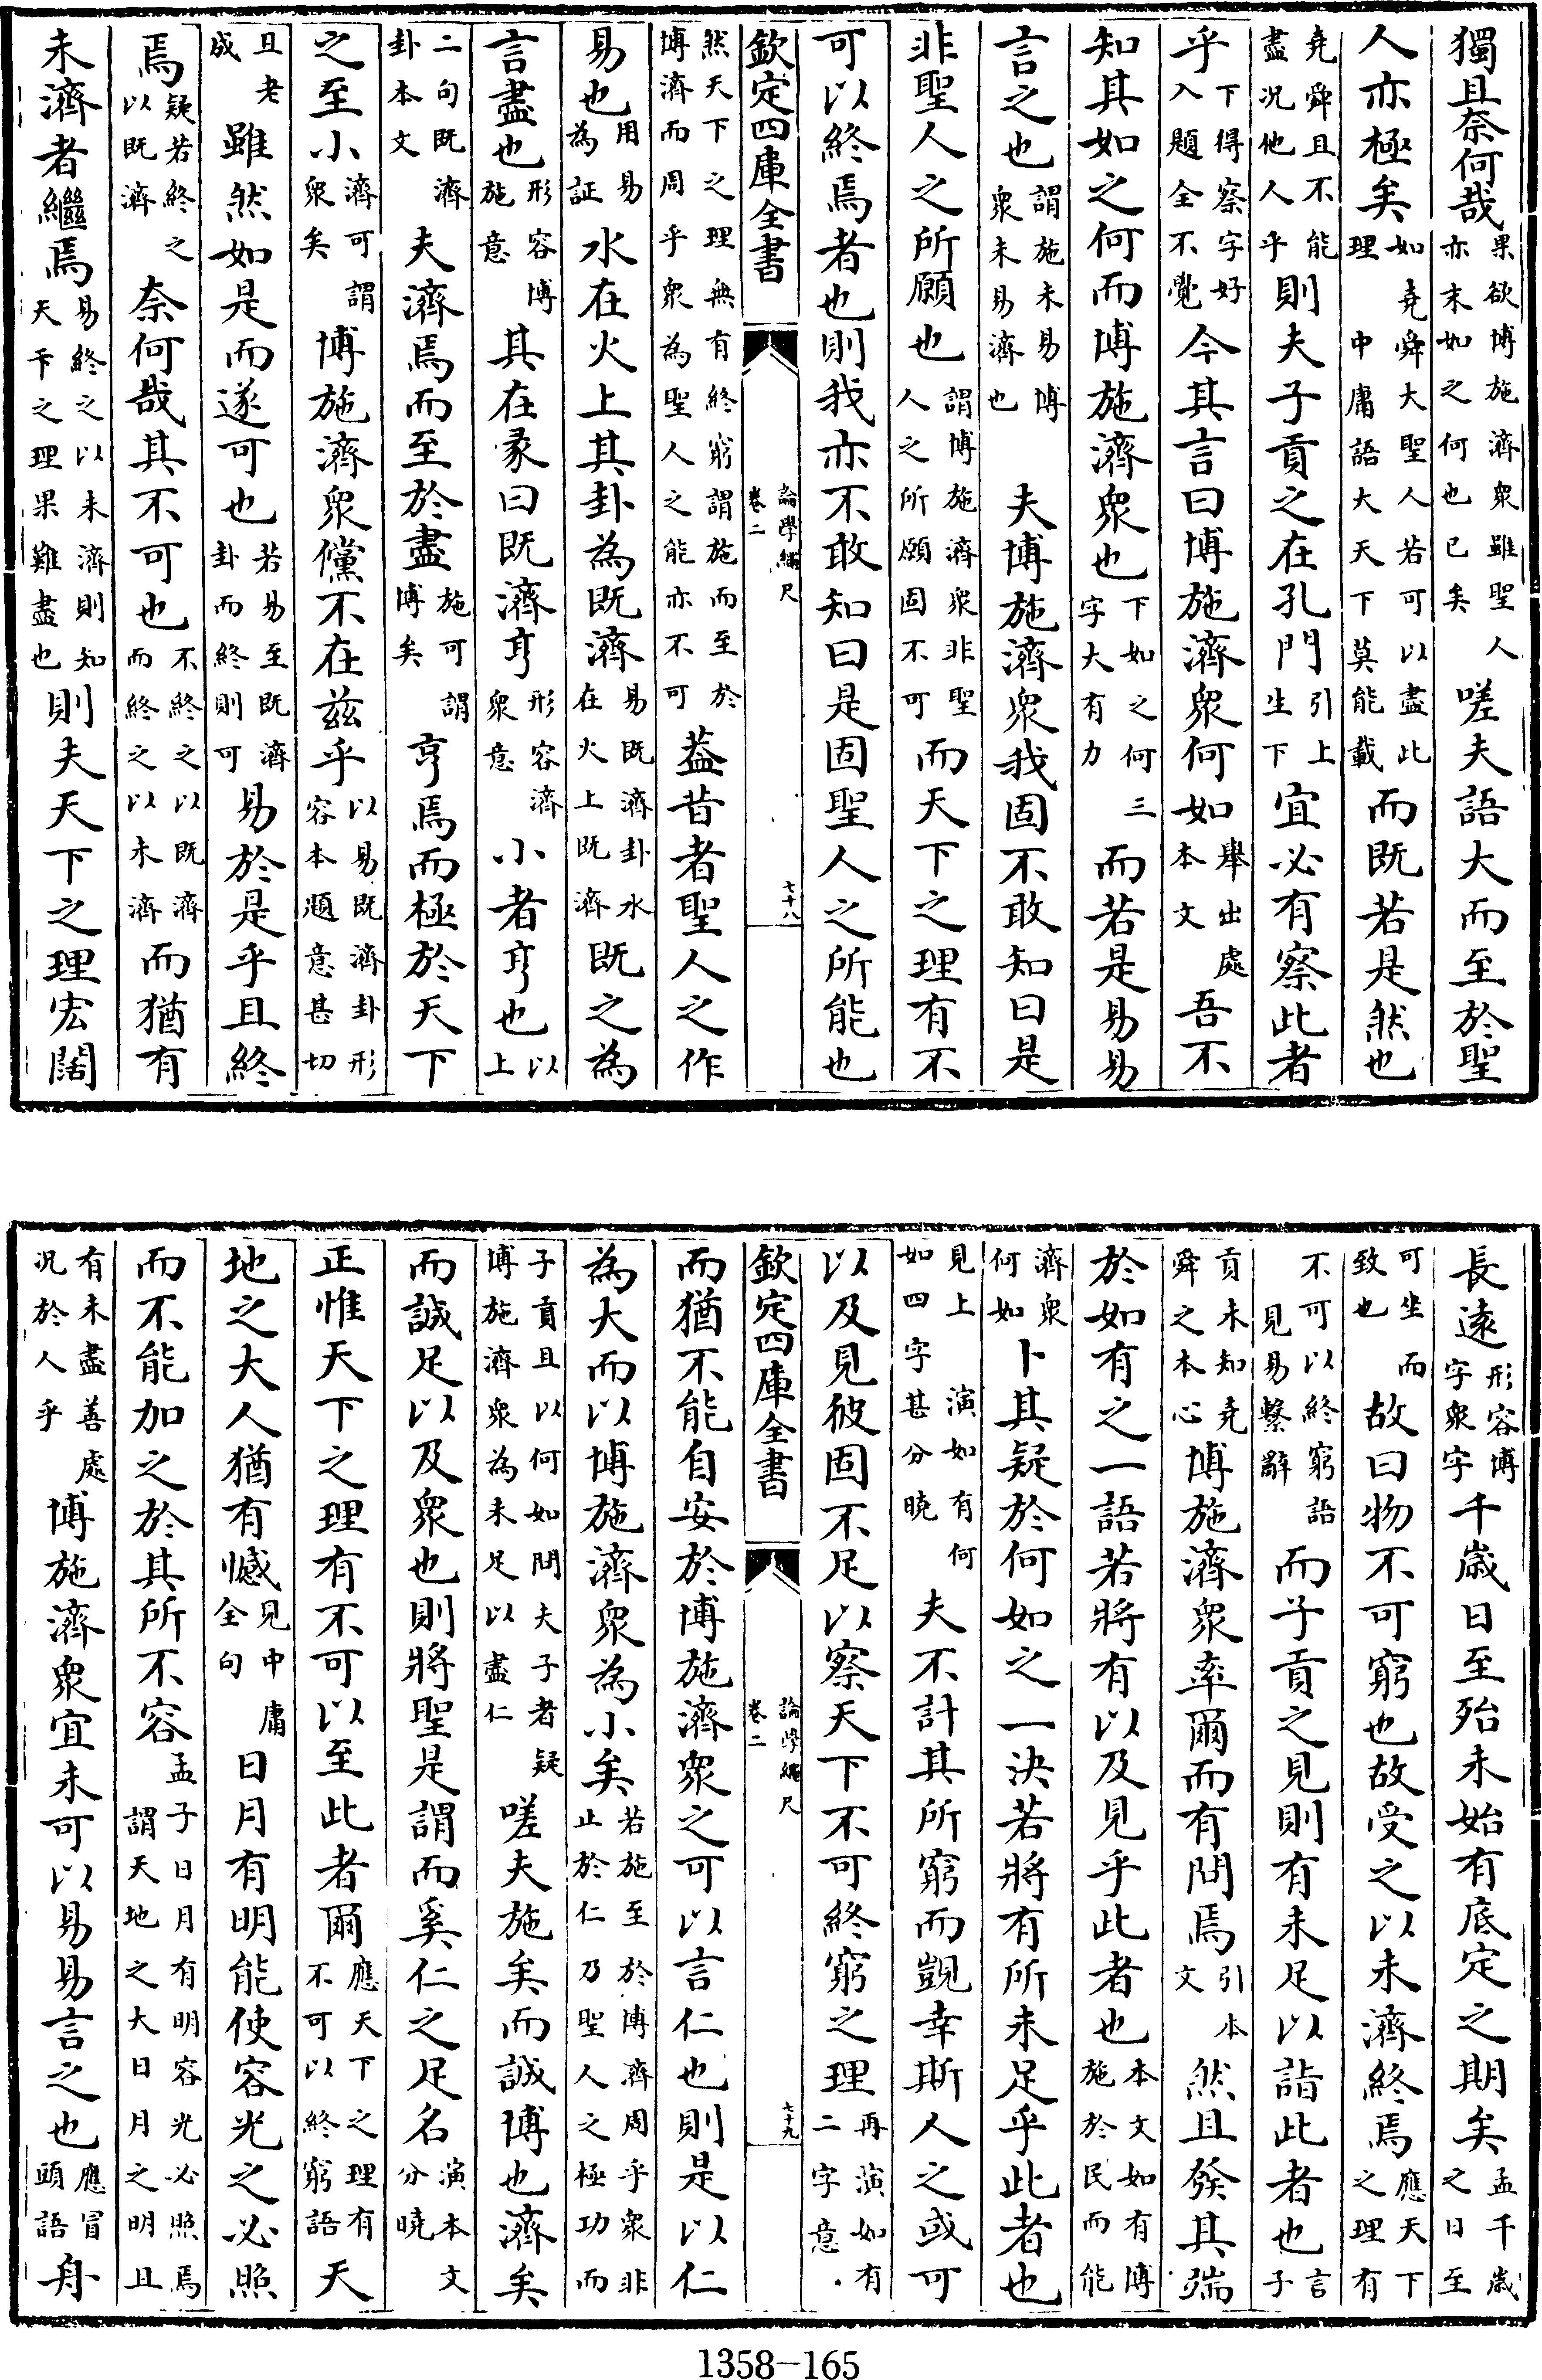 獨且奈何哉果欲博施濟衆雖聖人亦末如之何也已矣嗟夫語大而至於聖
人亦極矣如堯舜大聖人若可以盡此理中庸語大天下莫能載而既若是然也
堯舜且不能盡况他人乎則夫子貢之在孔門引上生下宜必有察此者
乎下得察字好入題全不覺今其言曰博施濟衆何如舉出處本文吾不
知其如之何而博施濟衆也下如之何三字大有力而若是易易
言之也謂施未易博衆未易濟也夫博施濟衆我固不敢知曰是
非聖人之所願也謂博施濟衆非聖人之所願固不可而天下之理有不
可以終焉者也則我亦不敢知曰是固聖人之所能也
欽定四庫全書 論學繩尺 卷二 七十八
然天下之理無有終窮謂施而至於博濟而周乎衆為聖人之能亦不可葢昔者聖人之作
易也用易為証水在火上其卦為既濟易既濟卦水在火上既濟既之為
言盡也形容博施意其在彖曰既濟亨形容濟衆意小者亨也以上
二句既濟卦本文夫濟焉而至於盡施可謂博矣亨焉而極於天下
之至小濟可謂衆矣博施濟衆儻不在兹乎以易既濟卦形容本題意甚切
且老成雖然如是而遂可也若易至既濟卦而終則可易於是乎且終
焉疑若終之以既濟奈何哉其不可也不終之以既濟而終之以未濟而猶有
未濟者繼焉易終之以未濟則知天下之理果難盡也則夫天下之理宏闊
長遠形容博字衆字千歲日至殆未始有底定之期矣孟千歲之日至
可坐而致也故曰物不可窮也故受之以未濟終焉應天下之理有
不可以終窮語見易繫辭而子貢之見則有未足以詣此者也言子
貢未知堯舜之本心博施濟衆率爾而有問焉引本文然且發其端
於如有之一語若將有以及見乎此者也本文如有博施於民而能
濟衆何如卜其疑於何如之一決若將有所未足乎此者也
見上演如有何如四字甚分曉夫不計其所窮而覬幸斯人之或可
以及見彼固不足以察天下不可終窮之理再演如有二字意
欽定四庫全書 論學繩尺 卷二 七十九
而猶不能自安於博施濟衆之可以言仁也則是以仁
為大而以博施濟衆為小矣若施至於博濟周乎衆非止於仁乃聖人之極功而
子貢且以何如問夫子者疑博施濟衆為未足以盡仁嗟夫施矣而誠博也濟矣
而誠足以及衆也則將聖是謂而奚仁之足名演本文分曉
正惟天下之理有不可以至此者爾應天下之理有不可以終窮語天
地之大人猶有憾見中庸全句日月有明能使容光之必照
而不能加之於其所不容孟子日月有明容光必照焉謂天地之大日月之明且
有未盡善處况於人乎博施濟衆宜未可以易易言之也應冒頭語舟
1358-165